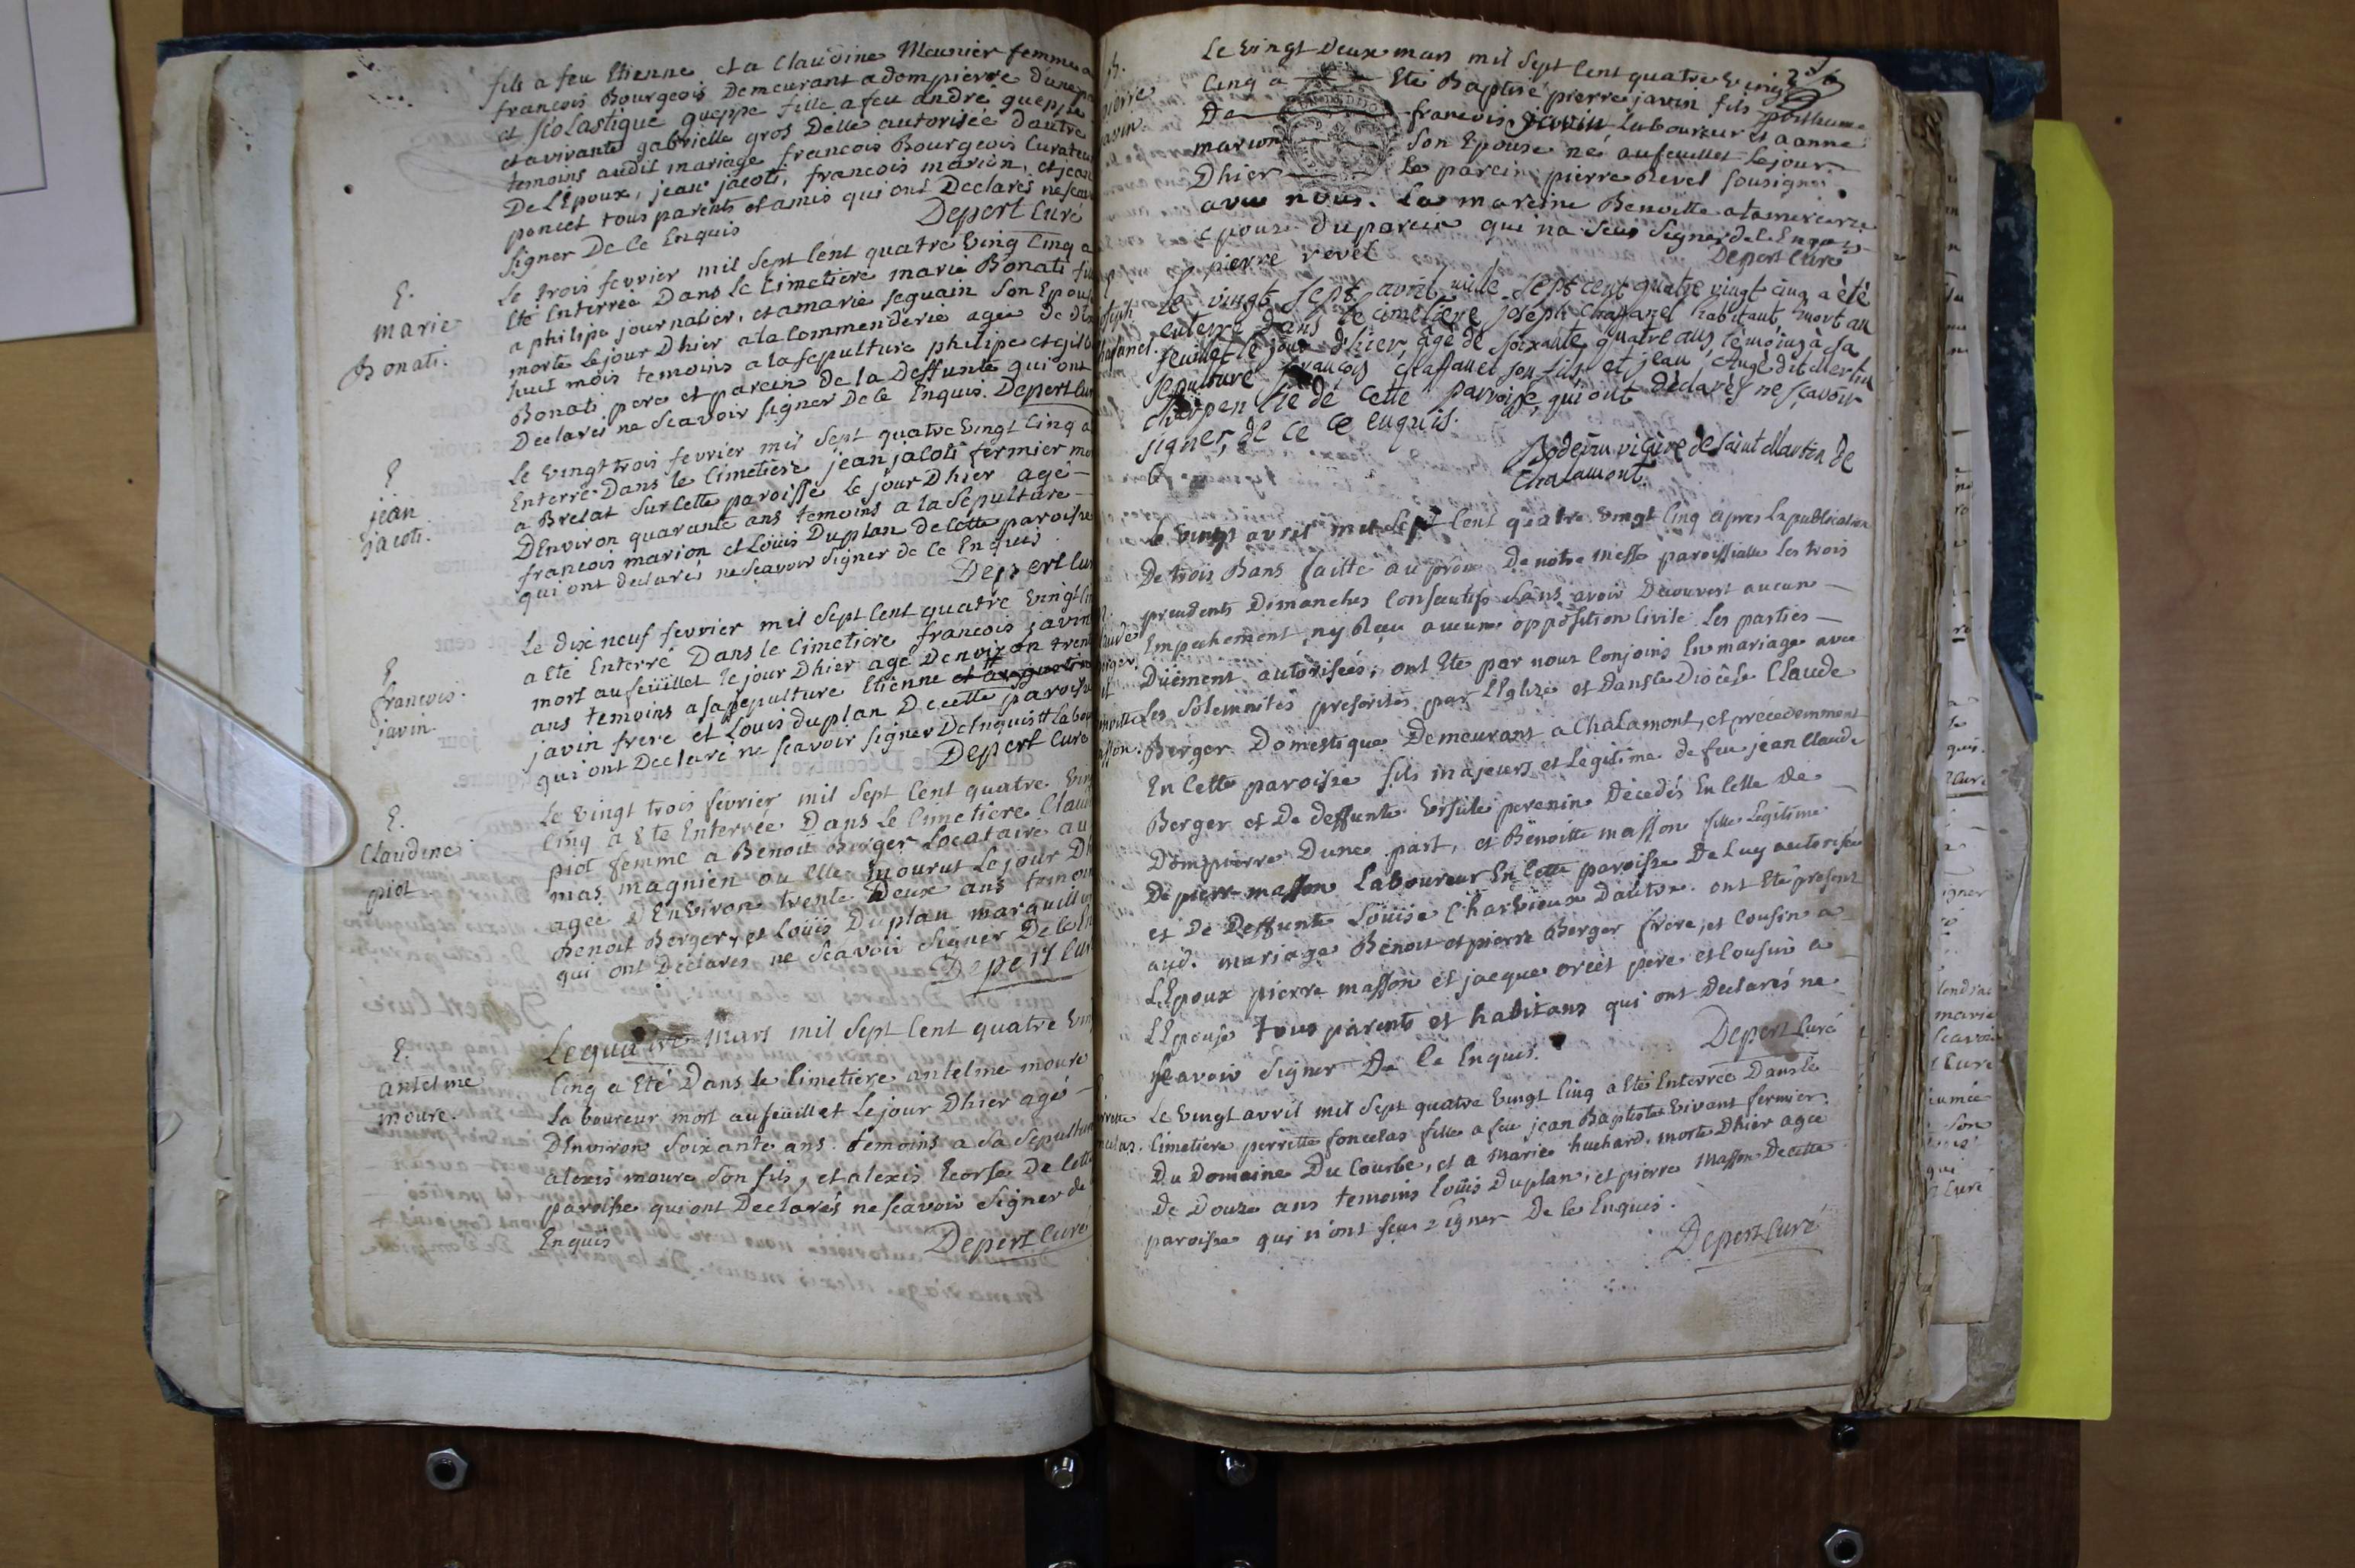 fils a feu Etienne et a Claudine Meunier femme a
francois Bourgeois Demeurant a dompierre dune
et scolastique gueppe fille a feu andré gueppe
et a vivante gabrielle gros Delle autorisée dautre
temoins audit mariage francois Bourgeois Curateur
De LEpoux, jean jacoti, francois marion, et jean
poncet tous parents et amis qui ont Declarés ne scavoir
signer De Ce Enquis
Depert Curé
E.
marie
Bonati.
Le trois fevrier mil Sept Cent quatre Vingt Cinq a
Eté Enterrée Dans Le Cimetiere marie Bonati fille
a philipe journalier, et a marie seguain Son Epouse
morte Le jour Dhier a la Commenderie agee de dix
huit mois temoins a la sepulture philipe et
Bonati pere et parein de la Deffunte qui ont
Declarés ne Scavoir signer De Ce Enquis. Depert Curé
E
jean
jacoti.
Le Vingt trois fevrier mil Sept quatre Vingt Cinq a
Enterré Dans le Cimetiere jean jacoti fermier mort
a Brelat Sur Cette paroisse Le jour Dhier agé
DEnviron quarante ans temoins a la Sépulture
francois marion et Louis Duplan de Cette paroisse
qui ont declarés ne Scavoir Signer de Ce Enquis
Depert Curé
E
francois
javin.
Le dix neuf fevrier mil Sept Cent quatre Vingt Cinq
a Eté Enterré Dans le Cimetiere francois javin
mort au feüillet le jour Dhier agé Denviron trente
ans temoins a sa sepulture Etienne
javin frere et Louis duplan De cette paroisse
qui ont Declaré ne scavoir signer De Enquis
Depert Curé
E.
Claudine
piot
Le Vingt trois fevrier mil Sept Cent quatre Vingt
Cinq a Eté Enterrée Dans Le Cimetiere Claudine
piot femme a Benoit Berger Locataire au
mas magnien ou Elle mourut Le jour Dhier
agee DEnviron trente Deux ans temoins
Benoit Berger, et Loüis Duplan marguillier
qui ont Declarés ne Scavoir Signer De Ce En
Depert Curé
E.
antelme
moure.
Le quatre Mars mil Sept Cent quatre Vingt
Cinq a Eté Dans Le Cimetiere antelme moure
Laboureur mort au feuillet Le jour Dhier agé
DEnviron Soixante ans. temoins a Sa Sepulture
alexis moure Son fils, et alexis Ecorse De Cette
paroisse qui ont Declarés ne scavoir Signer de
Enquis
Depert Curé
B.
pierre
javin
Le Vingt Deux mars mil Sept Cent quatre Vingt
Cinq a Eté Baptisé pierre javin fils posthume
De francois javin Laboureur et a anne
marion Son Epouse né au feuillet Le jour
Dhier Le parein pierre revel Sousigné
avec nous. La mareine Benoitte
Epouse du parein qui na Sceu Signer de Ce Enquis
pierre revel Depert Curé
Le vingt sept avril mille sept cent quatre vingt cinq a été
enterré dans le cimetière joseph Chaffanel habitant mort au
feuillet le jour d'hier, âgé de soixante quatre ans, témoins à sa
sepulture françois chaffanel son fils et jean
de cette paroisse, qui ont déclarés ne sçavoir
signer, de ce enquis.
vicaire de saint Martin de
Chalamont.
Le Vingt avril mil Sept Cent quatre Vingt Cinq apres La publication
De trois Bans faitte au prône De notre messe paroissialle Les trois
precedents Dimanches Consecutifs Sans avoir Decouvert aucun
Empechement ny Reçu aucune oppôsition Civile Les parties
Düement autorisées, ont Ete par nous Conjoins En mariage avec
Les Solemnités prescrites par LEglize et Dans Ce Diocêse Claude
Berger Domestique Demeurant a Chalamont, et precedemment
En Cette paroisse fils majeur et Legitime de feu jean Claude
Berger et De deffunte Ursule perenin Décedés En Celle de
Dompierre Dune part, et Benoitte masson fille Legitime
De pierre masson Laboureur En Cette paroisse De Luy autorisée
et De Deffunte Loüise Charvieux Dautre. ont Eté presents
aud. mariage Benoit et pierre Berger frere, et Cousin a
LEpoux pierre masson et jacque pere et Cousin a
LEpouse tous parents et habitans qui ont Declarés ne
Scavoir Signer De Ce Enquis.
Depert Curé
Le Vingt avril mil Sept quatre Vingt Cinq a Eté Enterrée Dans Le
Cimetiere perrette foncelas fille a feu jean Baptiste Vivant fermier
Du Domaine Du Courbe, et a marie huchard. morte Dhier agee
De Douze ans temoins Loüis Duplan, et pierre Masson De Cette
paroisse qui n'ont sceu Signer De Ce Enquis.
Depert Curé